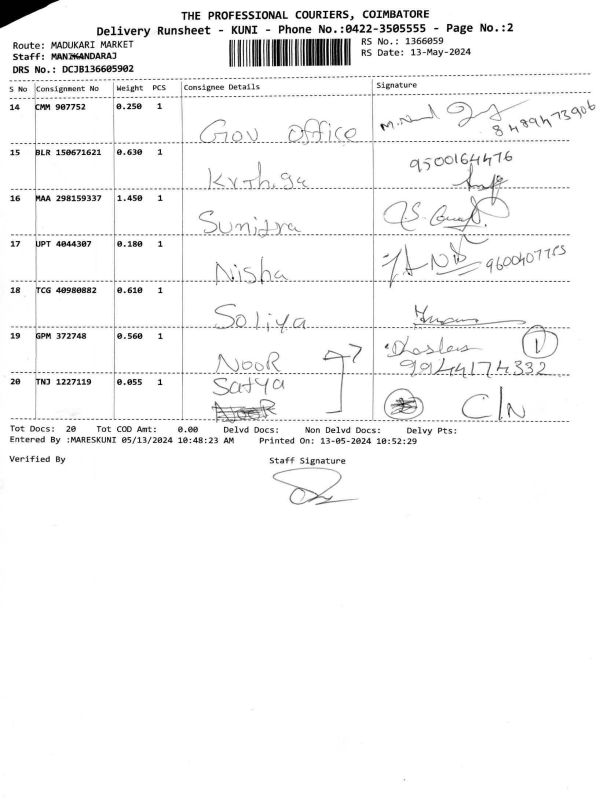 THE PROFESSIONAL COURIERS, COIMBATORE
Delivery Runsheet - KUNI - Phone No.:0422-3505555 - Page No.:2
Route: MADUKARI MARKET
RS No.: 1366059
Staff: MANIKANDARAJ
RS Date: 13-May-2024
DRS No.: DCJB136605902
S No Consignment No Weight PCS Consignee Details Signature
14 CMM 907752 0.250 1 Gov office 8489473906
15 BLR 150671621 0.630 1 Krthiga 9500164476
16 MAA 298159337 1.450 1 Sunitra
17 UPT 4044307 0.180 1 Nisha
18 TCG 40980882 0.610 1 Soliya
19 GPM 372748 0.560 1 NOOR 1
9944174332
20 TNJ 1227119 0.055 1 Satya C/N
NOOR
Tot Docs: 20 Tot COD Amt: 0.00 Delvd Docs: Non Delvd Docs: Delvy Pts:
Entered By :MARESKUNI 05/13/2024 10:48:23 AM Printed On: 13-05-2024 10:52:29
Verified By Staff Signature